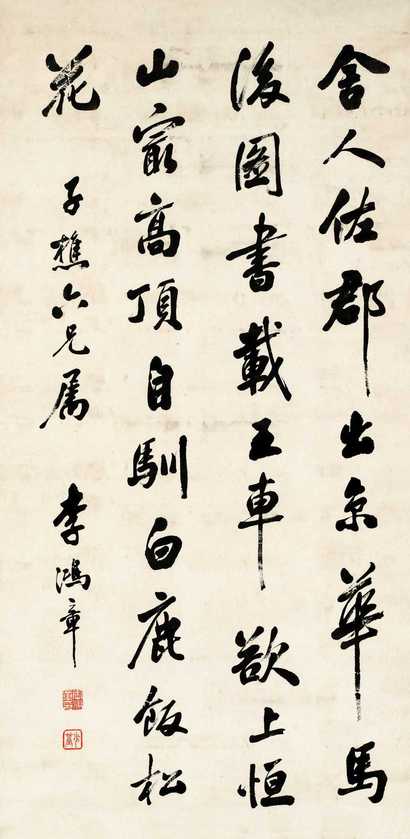 舍人佐郡出京華馬
後圖書載五車欲上恒
山冣高頂自馴白鹿飯松
花
子樵六兄屬 李鴻章